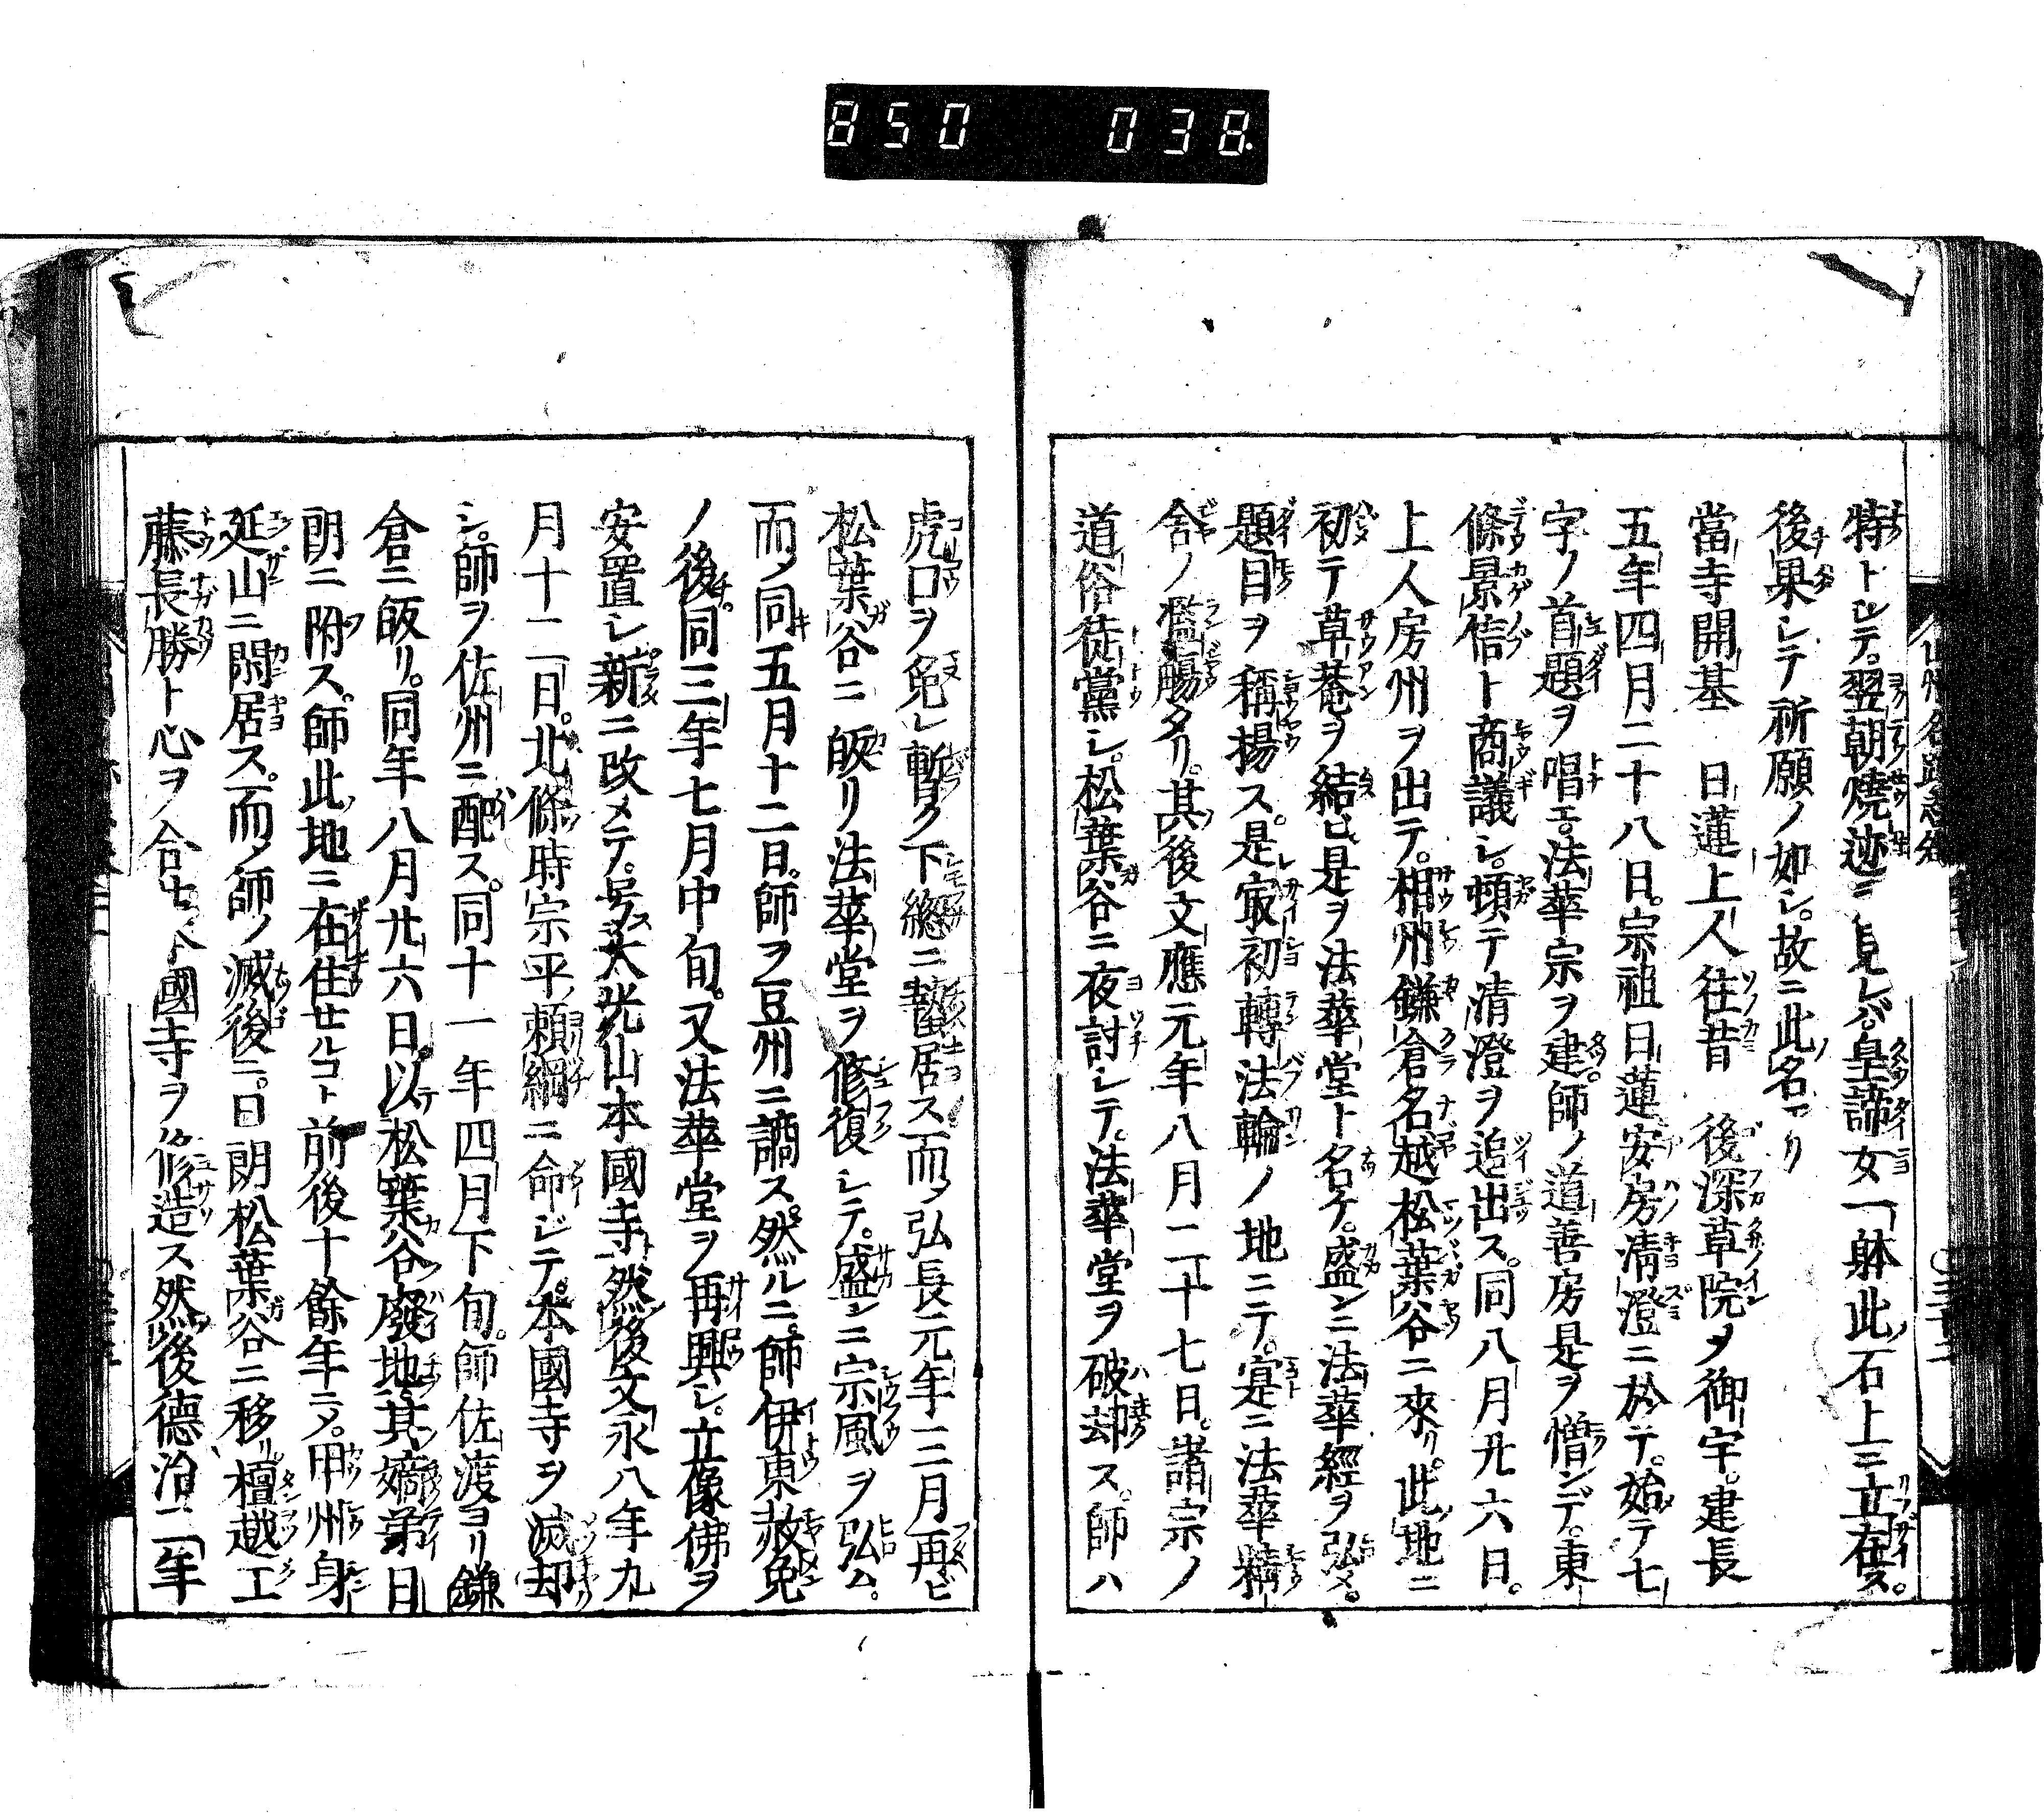 850 038
特トシテ。翌朝燒迹ヲ見レバ。皇諦女一躰此ノ石上ニ立在ス。
後果シテ祈願ノ如シ。故ニ此ノ名アリ
當寺開基 日蓮上人往昔 後深草院ノ御宇。建長
五年四月二十八日。宗祖日蓮安房ノ清澄ニ於テ。始テ七
字ノ首題ヲ唱エ。法華宗ヲ建。師ノ道善房是ヲ憎ンデ。東
條景信ト商議シ。頓テ清澄ヲ追出ス。同八月廾六日。
上人房州ヲ出テ。相州鎌倉名越松葉谷ニ來リ。此ノ地ニ
初テ草菴ヲ結ヒ。是ヲ法華堂ト名ケ。盛ンニ法華經ヲ弘メ。
題目ヲ稱揚ス。是㝡初轉法輪ノ地ニテ。寔ニ法華精
舍ノ濫觴タリ。其後文應元年八月二十七日。諸宗ノ
道俗徒黨シ。松葉谷ニ夜討シテ。法華堂ヲ破却ス。師ハ
虎口ヲ免レ暫ク下總ニ蟄居ス。而ノ弘長元年三月再ヒ
松葉谷ニ皈リ法華堂ヲ修復シテ。盛ンニ宗風ヲ弘ム。
而ノ同五月十二日。師ヲ豆州ニ謫ス。然ルニ。師伊東赦免
ノ後。同三年七月中旬。又法華堂ヲ再興シ。立像佛ヲ
安置シ新ニ改メテ。号ス大光山本國寺ト。然後文永八年九
月十二日。北條時宗平ノ頼綱ニ命ジテ。本國寺ヲ滅却
シ。師ヲ佐州ニ配ス。同十一年四月下旬。師佐渡ヨリ鎌
倉ニ皈リ。同年八月廾六日。以テ松葉谷ノ廢地ヲ其ノ嫡弟日
朗ニ附ス。師此地ニ在住セルコト前後十餘年ニシテ。甲州身
延山ニ閑居ス。而ノ師ノ滅後ニ。日朗松葉谷ニ移リ。檀越工
藤長勝ト心ヲ合セ本國寺ヲ修造ス然ノ後德治二年